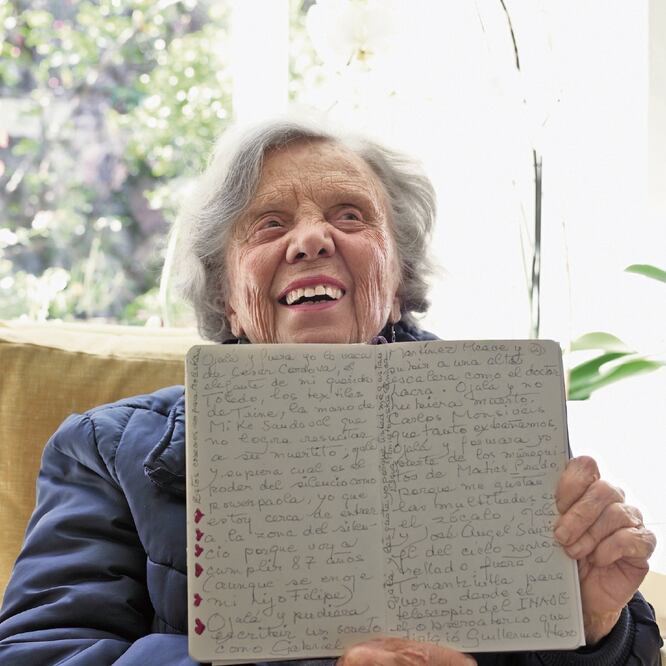 Ojalá y fuera yo la vaca
de César Córdova, el
elefante de mi querido
Toledo, los textiles
de Trine, la mano de
Mike Sandoval que
no logra resucitar
a su muertito, ojalá
y supiera cual es el
poder del silencio como
powerpaola, yo que
estoy cerca de entrar
a la zona del silen-
cio porque voy a
cumplir 87 años
(aunque se enoje
mi hijo Felipe)
Ojalá y pudiera
escribir un soneto
como Gabriel
Martínez Meave y
subir a una alta
escalera como el doctor
Lacra. Ojalá y no
hubiera muerto
Carlos Monsiváis
que tanto extrañamos,
Ojalá y formara yo
parte de los muñequi-
tos de Matías Prado,
porque me gustan
las multitudes en
el zócalo, ojalá
y José Angel Santia-
go el del cielo negro es-
trellado, fuera a
Tonantzintla para
verlo desde el
telescopio del INAOE
el observatorio que
dirigió Guillermo Haro